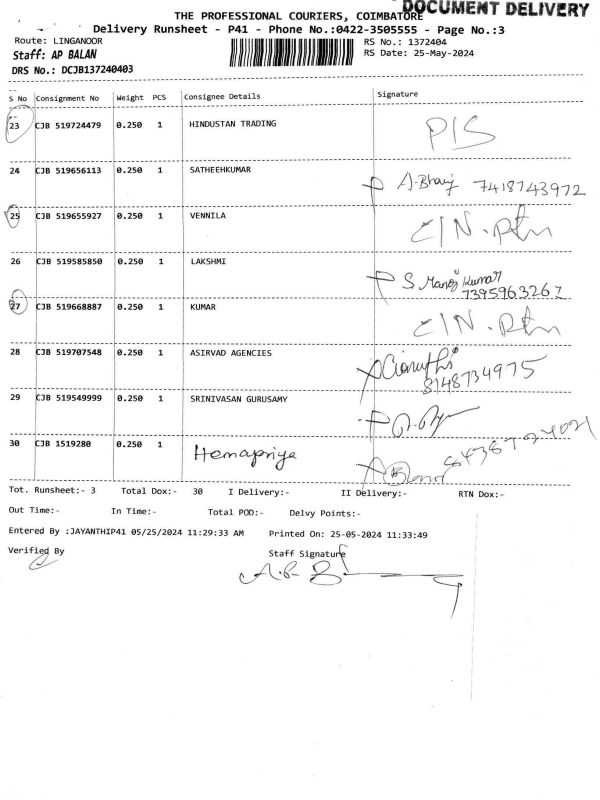 DOCUMENT DELIVERY
THE PROFESSIONAL COURIERS, COIMBATORE
Delivery Runsheet - P41 - Phone No.:0422-3505555 - Page No.:3
Route: LINGANOOR RS No.: 1372404
Staff: AP BALAN RS Date: 25-May-2024
DRS No.: DCJB137240403
S No Consignment No Weight PCS Consignee Details Signature
23 CJB 519724479 0.250 1 HINDUSTAN TRADING P/S
24 CJB 519656113 0.250 1 SATHEEHKUMAR 7418743972
25 CJB 519655927 0.250 1 VENNILA C/N. Rtn
26 CJB 519585850 0.250 1 LAKSHMI S Manoj Kumar
7395963267
27 CJB 519668887 0.250 1 KUMAR C/N. Rtn
28 CJB 519707548 0.250 1 ASIRVAD AGENCIES
8148734975
29 CJB 519549999 0.250 1 SRINIVASAN GURUSAMY
30 CJB 1519280 0.250 1 Hemapriya
Tot. Runsheet:- 3 Total Dox:- 30 I Delivery:- II Delivery:- RTN Dox:-
Out Time:- In Time:- Total POD:- Delvy Points:-
Entered By :JAYANTHIP41 05/25/2024 11:29:33 AM Printed On: 25-05-2024 11:33:49
Verified By Staff Signature